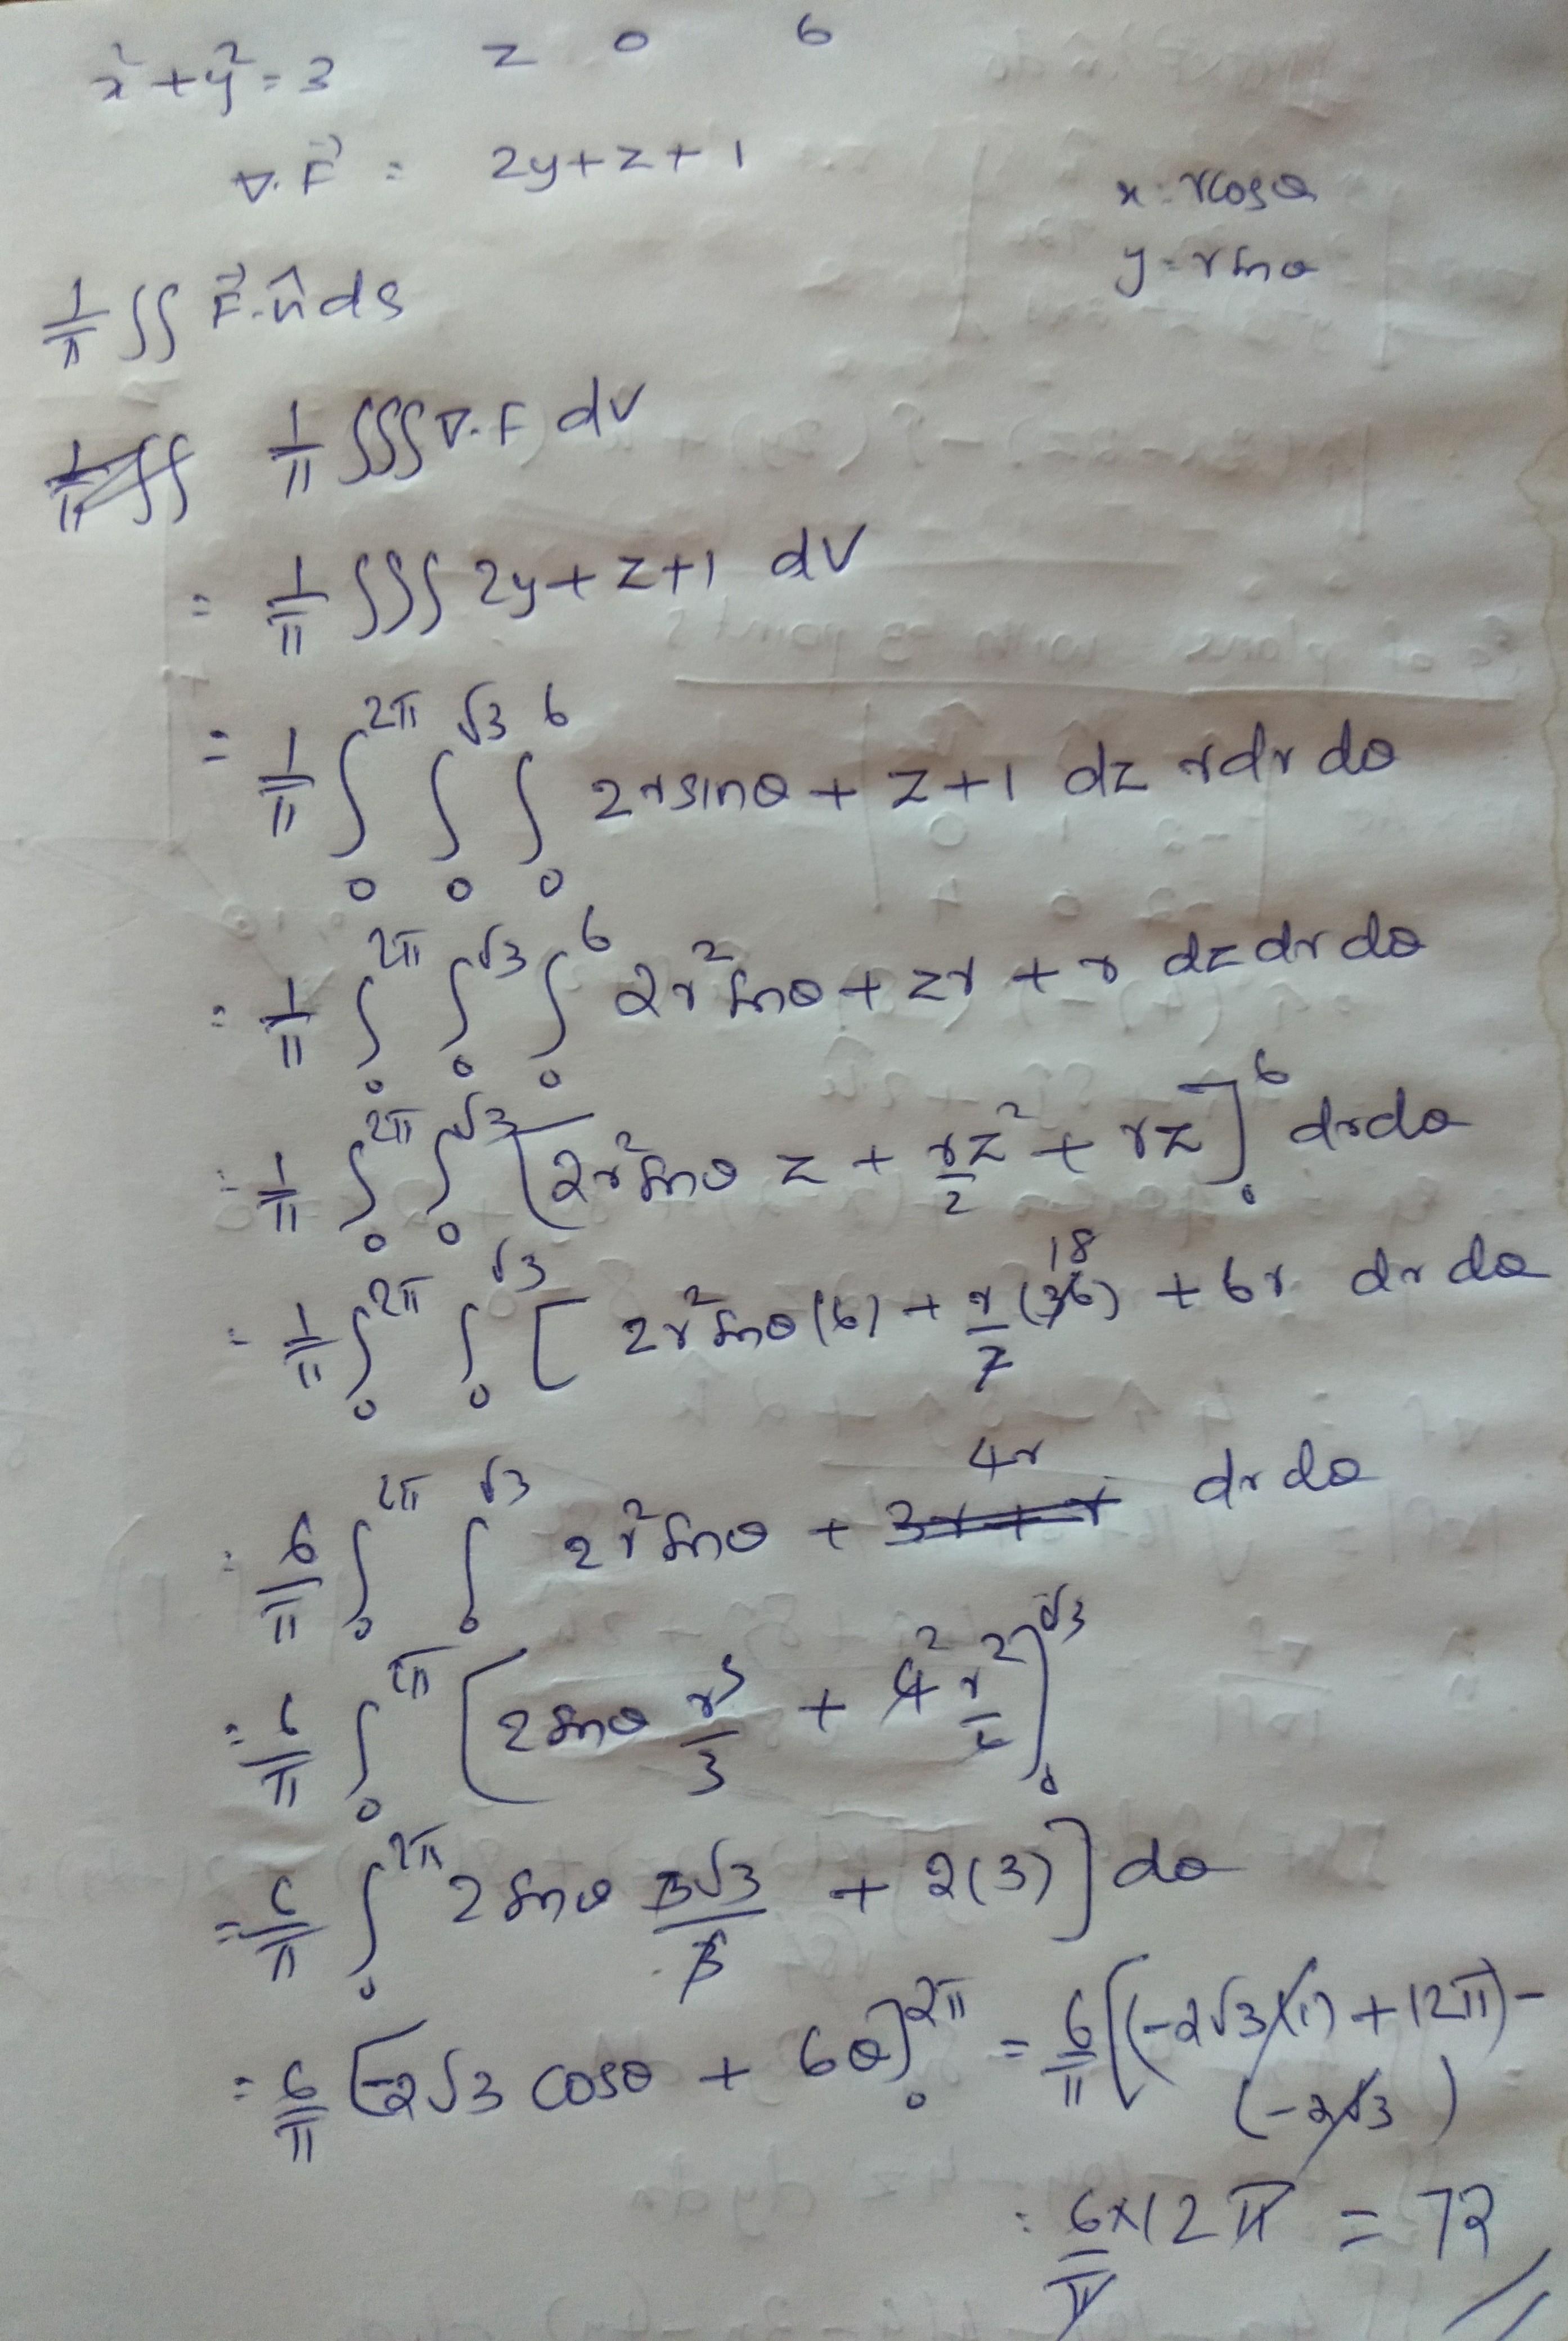 x² + y² = 3 z 0 6
∇·F⃗ = 2y+z+1
x = rcosθ
y = rsinθ
1/π ∬ F⃗·n̂ ds
1/π ∬ 1/π ∭ ∇·F dV
= 1/π ∭ 2y+z+1 dV
= 1/π ∫₀^2π ∫₀^√3 ∫₀^6 2rsinθ + z+1 dz rdr dθ
= 1/π ∫₀^2π ∫₀^√3 ∫₀^6 2r²sinθ + zr + r dz dr dθ
= 1/π ∫₀^2π ∫₀^√3 [2r²sinθ z + rz²/2 + rz]₀^6 drdθ
= 1/π ∫₀^2π ∫₀^√3 [ 2r²sinθ(6) + r/2 (36) 18 + 6r dr dθ
= 6/π ∫₀^2π ∫₀^√3 2r²sinθ + 3r + r 4r dr dθ
= 6/π ∫₀^2π [2sinθ r³/3 + 4² r²/2]₀^√3
= 6/π ∫₀^2π 2sinθ 3√3/3 + 2(3)] dθ
= 6/π [-2√3 cosθ + 6θ]₀^2π = 6/π [(-2√3(1) + 12π) -
(-2√3)
= 6/π × 12π = 72